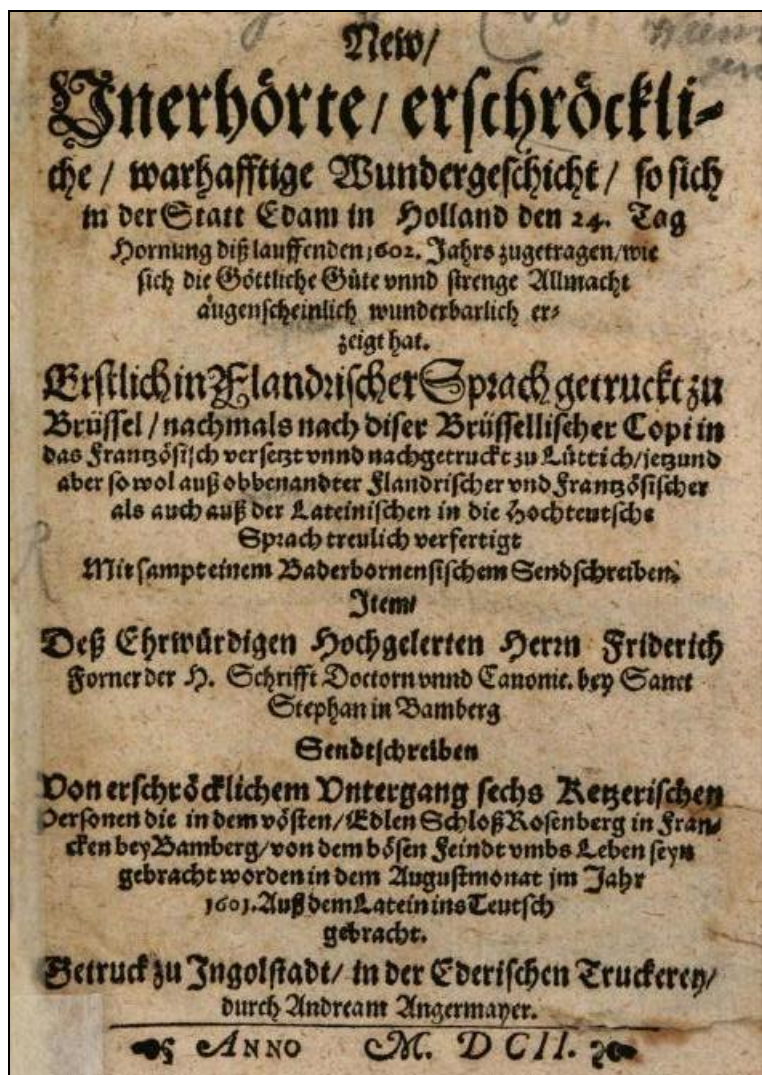 New/
Vnerhörte/ erschröckli-
che / warhafftige Wundergeschicht / so sich
in der Statt Edam in Holland den 24. Tag
Hornung diß lauffenden 1602. Jahrs zugetragen/wie
sich die Göttliche Güte vnnd strenge Allmacht
augenscheinlich wunderbarlich er-
zeigt hat.
Erstlich in Flandrischer Sprach getruckt zu
Brüssel / nachmals nach diser Brüssellischer Copi in
das Frantzösisch versetzt vnnd nachgetruckt zu Lüttich/jetzund
aber so wol auß obbenandter Flandrischer vnd Frantzösischer
als auch auß der Lateinischen in die Hochteutsche
Sprach treulich verfertigt
Mit sampt einem Baderbornensischem Sendschreiben.
Item
Deß Ehrwürdigen Hochgelerten Herrn Friderich
Forner der H. Schrifft Doctorn vnnd Canonic. bey Sanct
Stephan in Bamberg
Sendtschreiben
Von erschröcklichem Vntergang sechs Ketzerischen
Personen die in dem vösten/Edlen Schloß Rosenberg in Fran-
cken bey Bamberg/von dem bösen Feindt vmbs Leben seyn
gebracht worden in dem Augustmonat im Jahr
1601. Auß dem Latein ins Teutsch
gebracht.
Getruck zu Ingolstadt/ in der Ederischen Truckerey/
durch Andream Angermayer.
ANNO M. DCII.